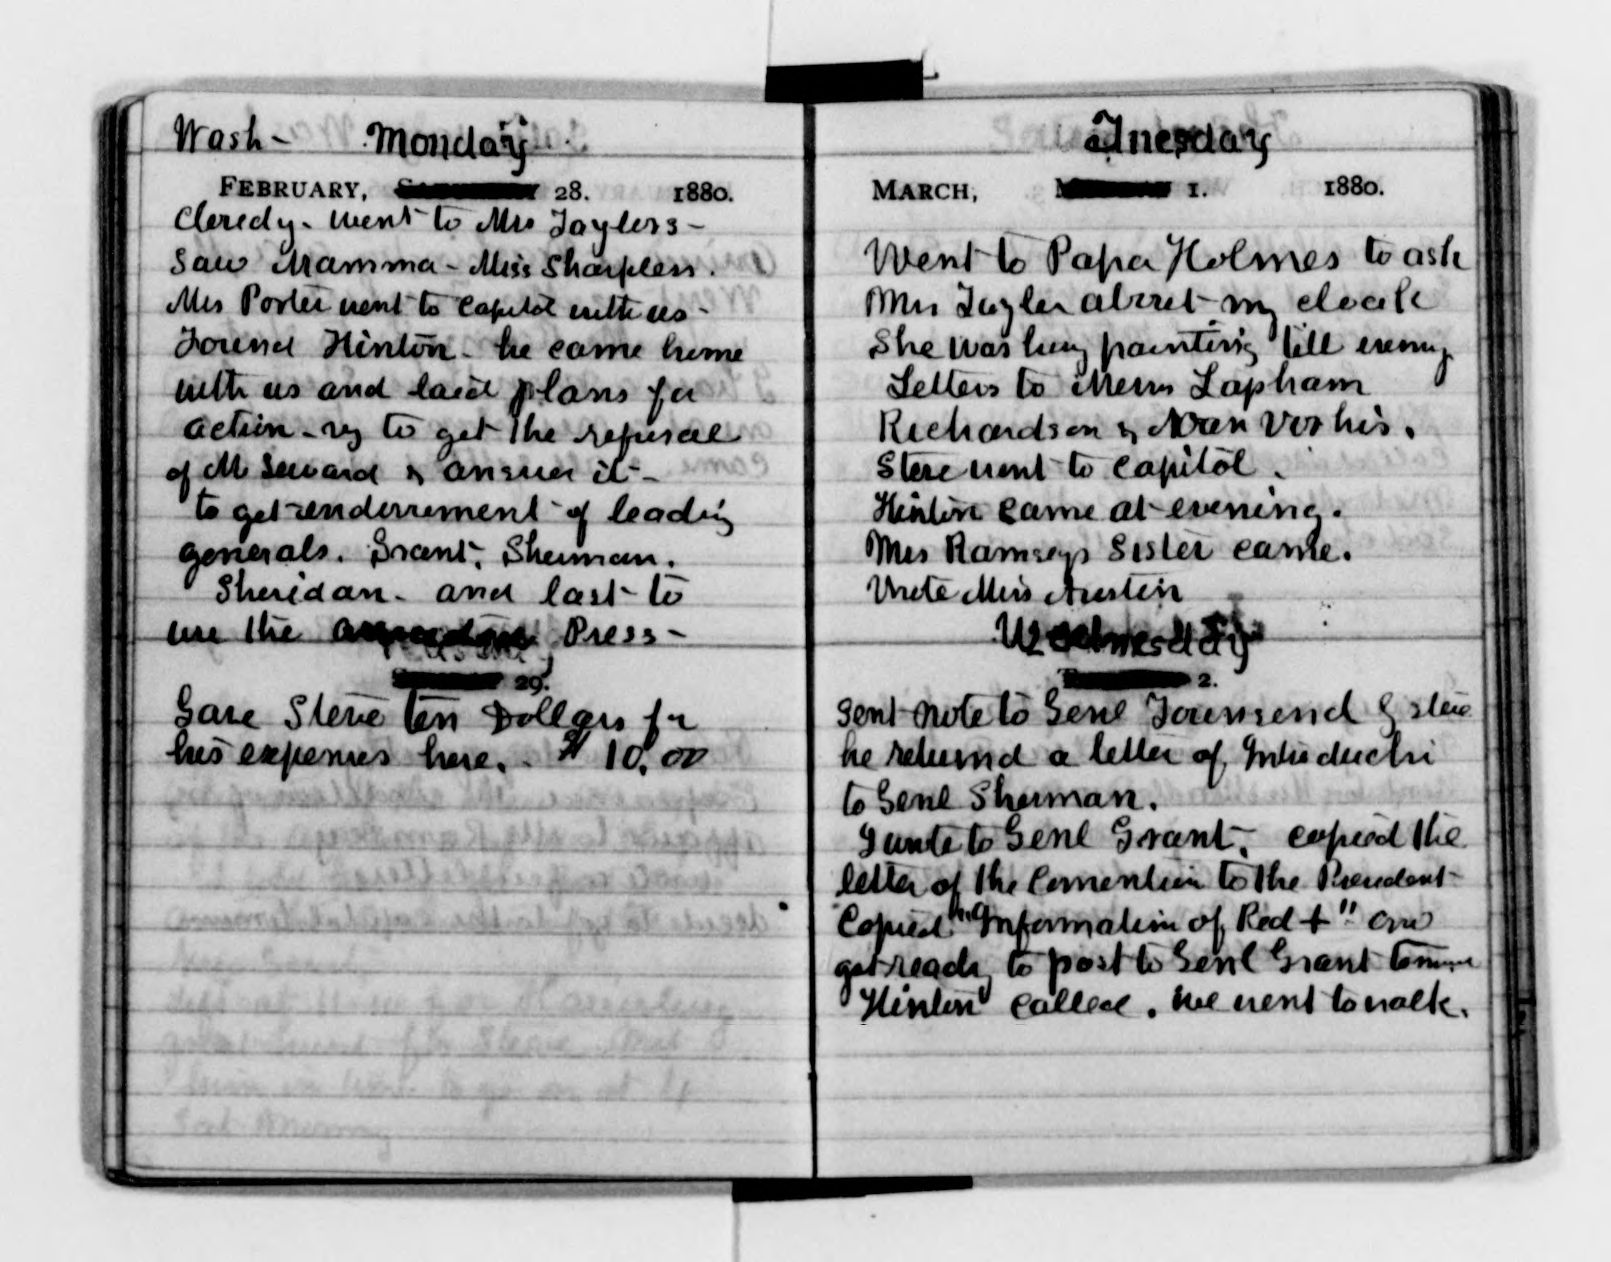 Wash - Monday
FEBRUARY, 28. 1880.
went to Mrs Taylers -
Saw Mamma - Miss Sharpless.
Mrs Porter went to Capitol with us -
Found Hinton - he came home
with us and laid plans for
action - to get the refusal
of Mr Seward & answer it -
to get endorsement of leading
generals. Grant, Sherman.
Sheridan - and last to
use the Press -
29.
Gave Steve ten Dollars for
his expenses here. $10.00
Tuesday
MARCH, 1. 1880.
Went to Papa Holmes to ask
Mrs Tayler about my cloak
She was busy painting till evening
Letters to Messrs Lapham
Richardson & Van Vorhis.
Steve went to Capitol.
Hinton came at evening.
Mrs Ramseys Sister came.
Wrote Miss Austin
Wednesday
2.
Sent note to Genl Townsend by Steve
he returnd a letter of Introductn
to Genl Sherman.
I wrote to Genl Grant, copied the
letter of the Convention to the President
Copied "Information of Red +" and
got ready to post to Genl Grant
Hinton called. We went to walk.